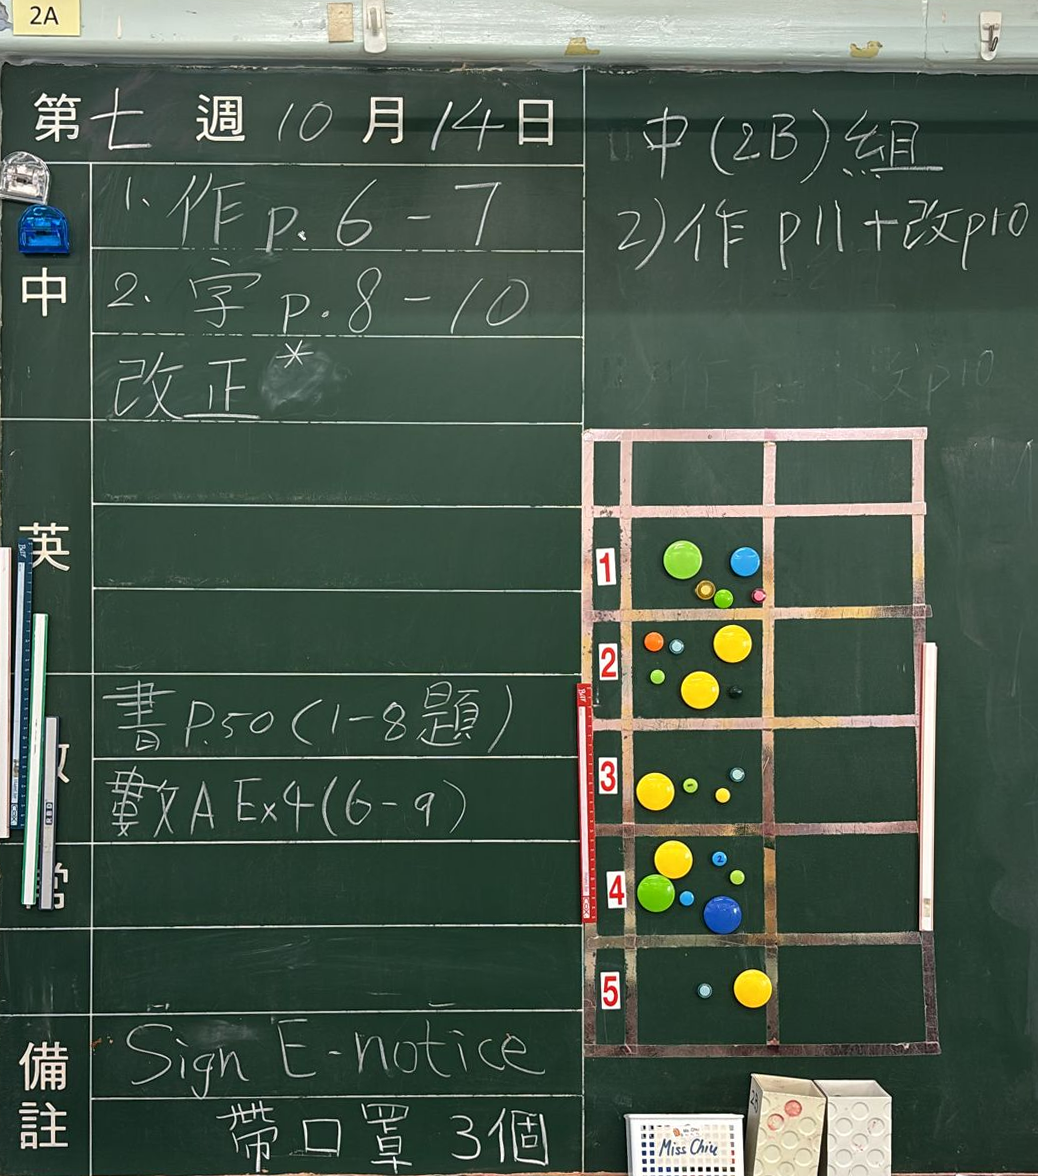 2A
第七週10月14日
中
1. 作 p. 6 - 7
2. 字 p. 8 - 10
改正*
英
數
書 P.50 (1-8題)
數A Ex4 (6-9)
常
備註
Sign E-notice
帶口罩 3個
中(2B)組
2) 作 p11 + 改p10
1
2
3
4
5
2
Miss Chiu